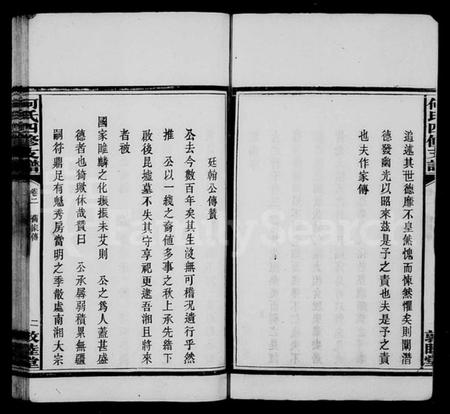 何氏四修支譜
追述其世德靡不皇然愧而悚然懼矣則闡潛
德發幽光以昭來茲是子之責也夫是子之責
也夫作家傳
敦睦堂
廷翰公傳贊
公去今數百年矣其生沒無可稽況遺行乎然
推 公以一綫之裔值多事之秋上承先緒下
啟後昆墳墓不失其守享祀更逮吾湘且將來
者被
國家雎麟之化振振未艾則 公之為人蓋甚盛
德者也猗歟休哉贊曰 公承孱弱積累無疆
嗣符鼎足有魁秀房當明之季散處南湘大宗
何氏四修支譜
卷二 舊家傳
二
敦睦堂
FamilySearch